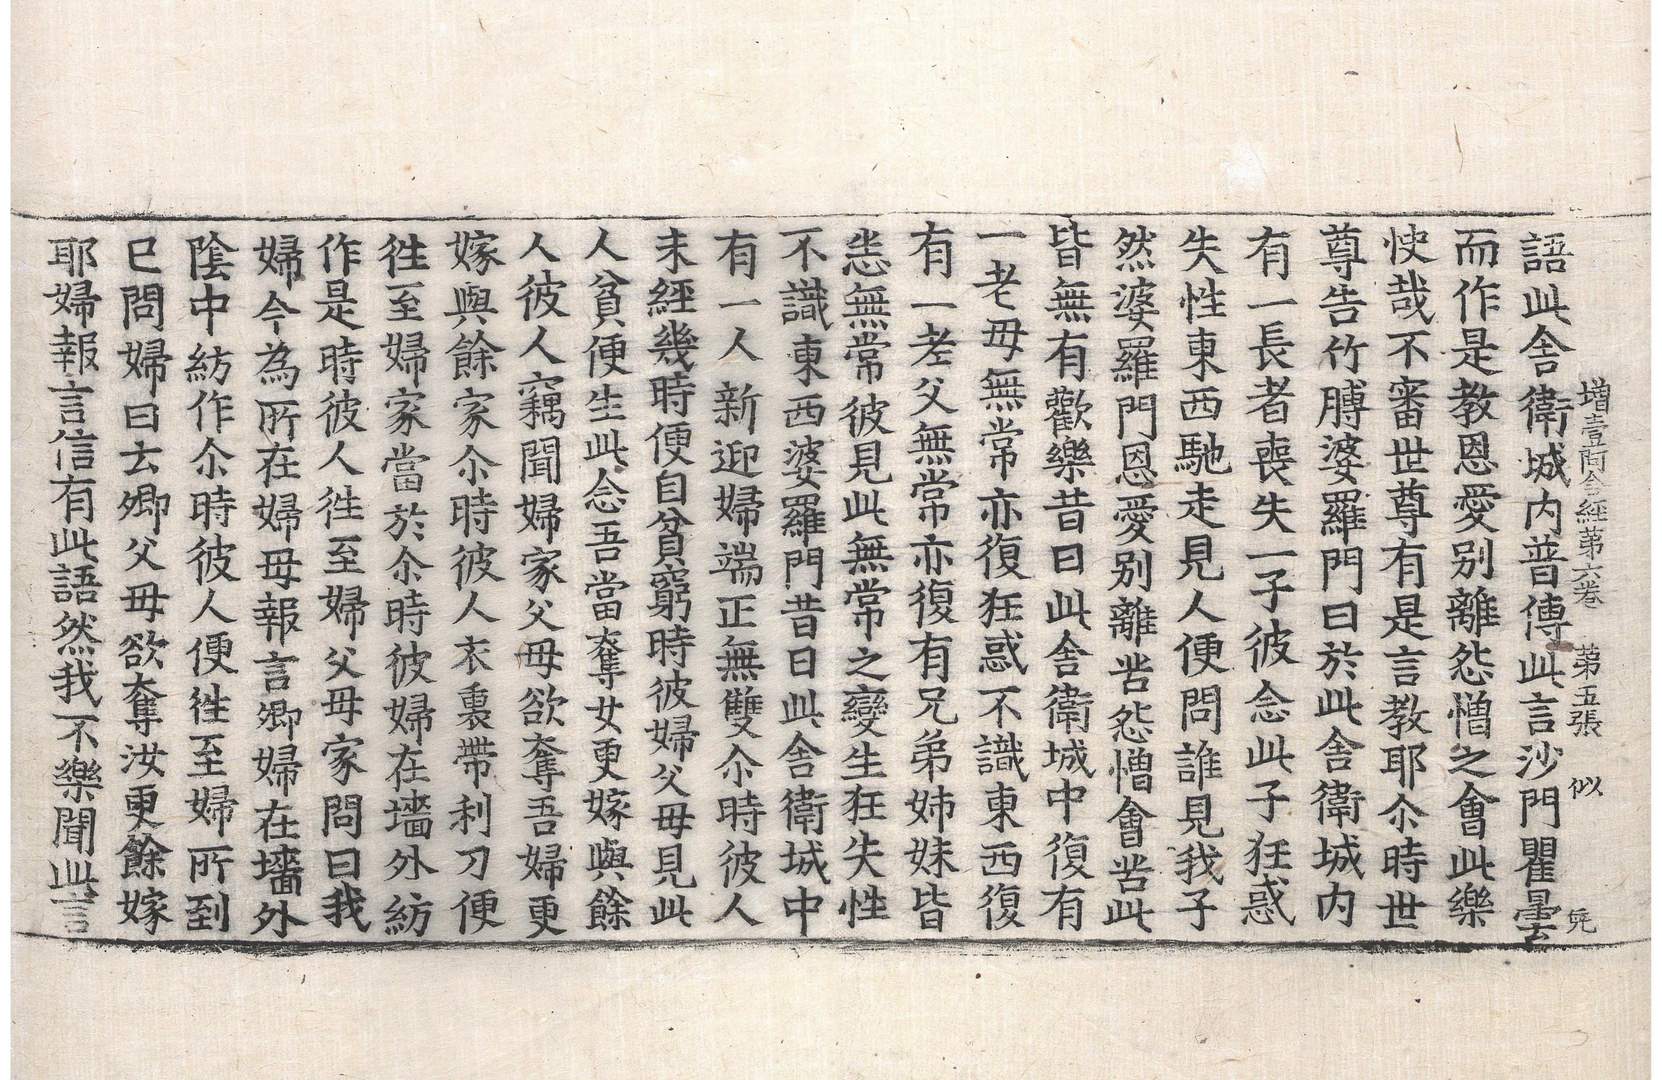 增壹阿含經第六卷 第五張 似 皃
語此舍衛城内普傳此言沙門瞿曇
而作是教恩愛别離怨憎之會此樂
快哉不審世尊有是言教耶尒時世
尊告竹膊婆羅門曰於此舍衛城内
有一長者喪失一子彼念此子狂惑
失性東西馳走見人便問誰見我子
然婆羅門恩愛别離苦怨憎會苦此
皆無有歡樂昔日此舍衛城中復有
一老母無常亦復狂惑不識東西復
有一老父無常亦復有兄弟姉妹皆
悉無常彼見此無常之變生狂失性
不識東西婆羅門昔日此舍衛城中
有一人新迎婦端正無雙尒時彼人
未經幾時便自貧窮時彼婦父母見此
人貧便生此念吾當奪女更嫁與餘
人彼人竊聞婦家父母欲奪吾婦更
嫁與餘家尒時彼人衣裏帶利刀便
徃至婦家當於尒時彼婦在墻外紡
作是時彼人徃至婦父母家問曰我
婦今為所在婦母報言卿婦在墻外
陰中紡作尒時彼人便徃至婦所到
已問婦曰云卿父母欲奪汝更餘嫁
耶婦報言信有此語然我不樂聞此言